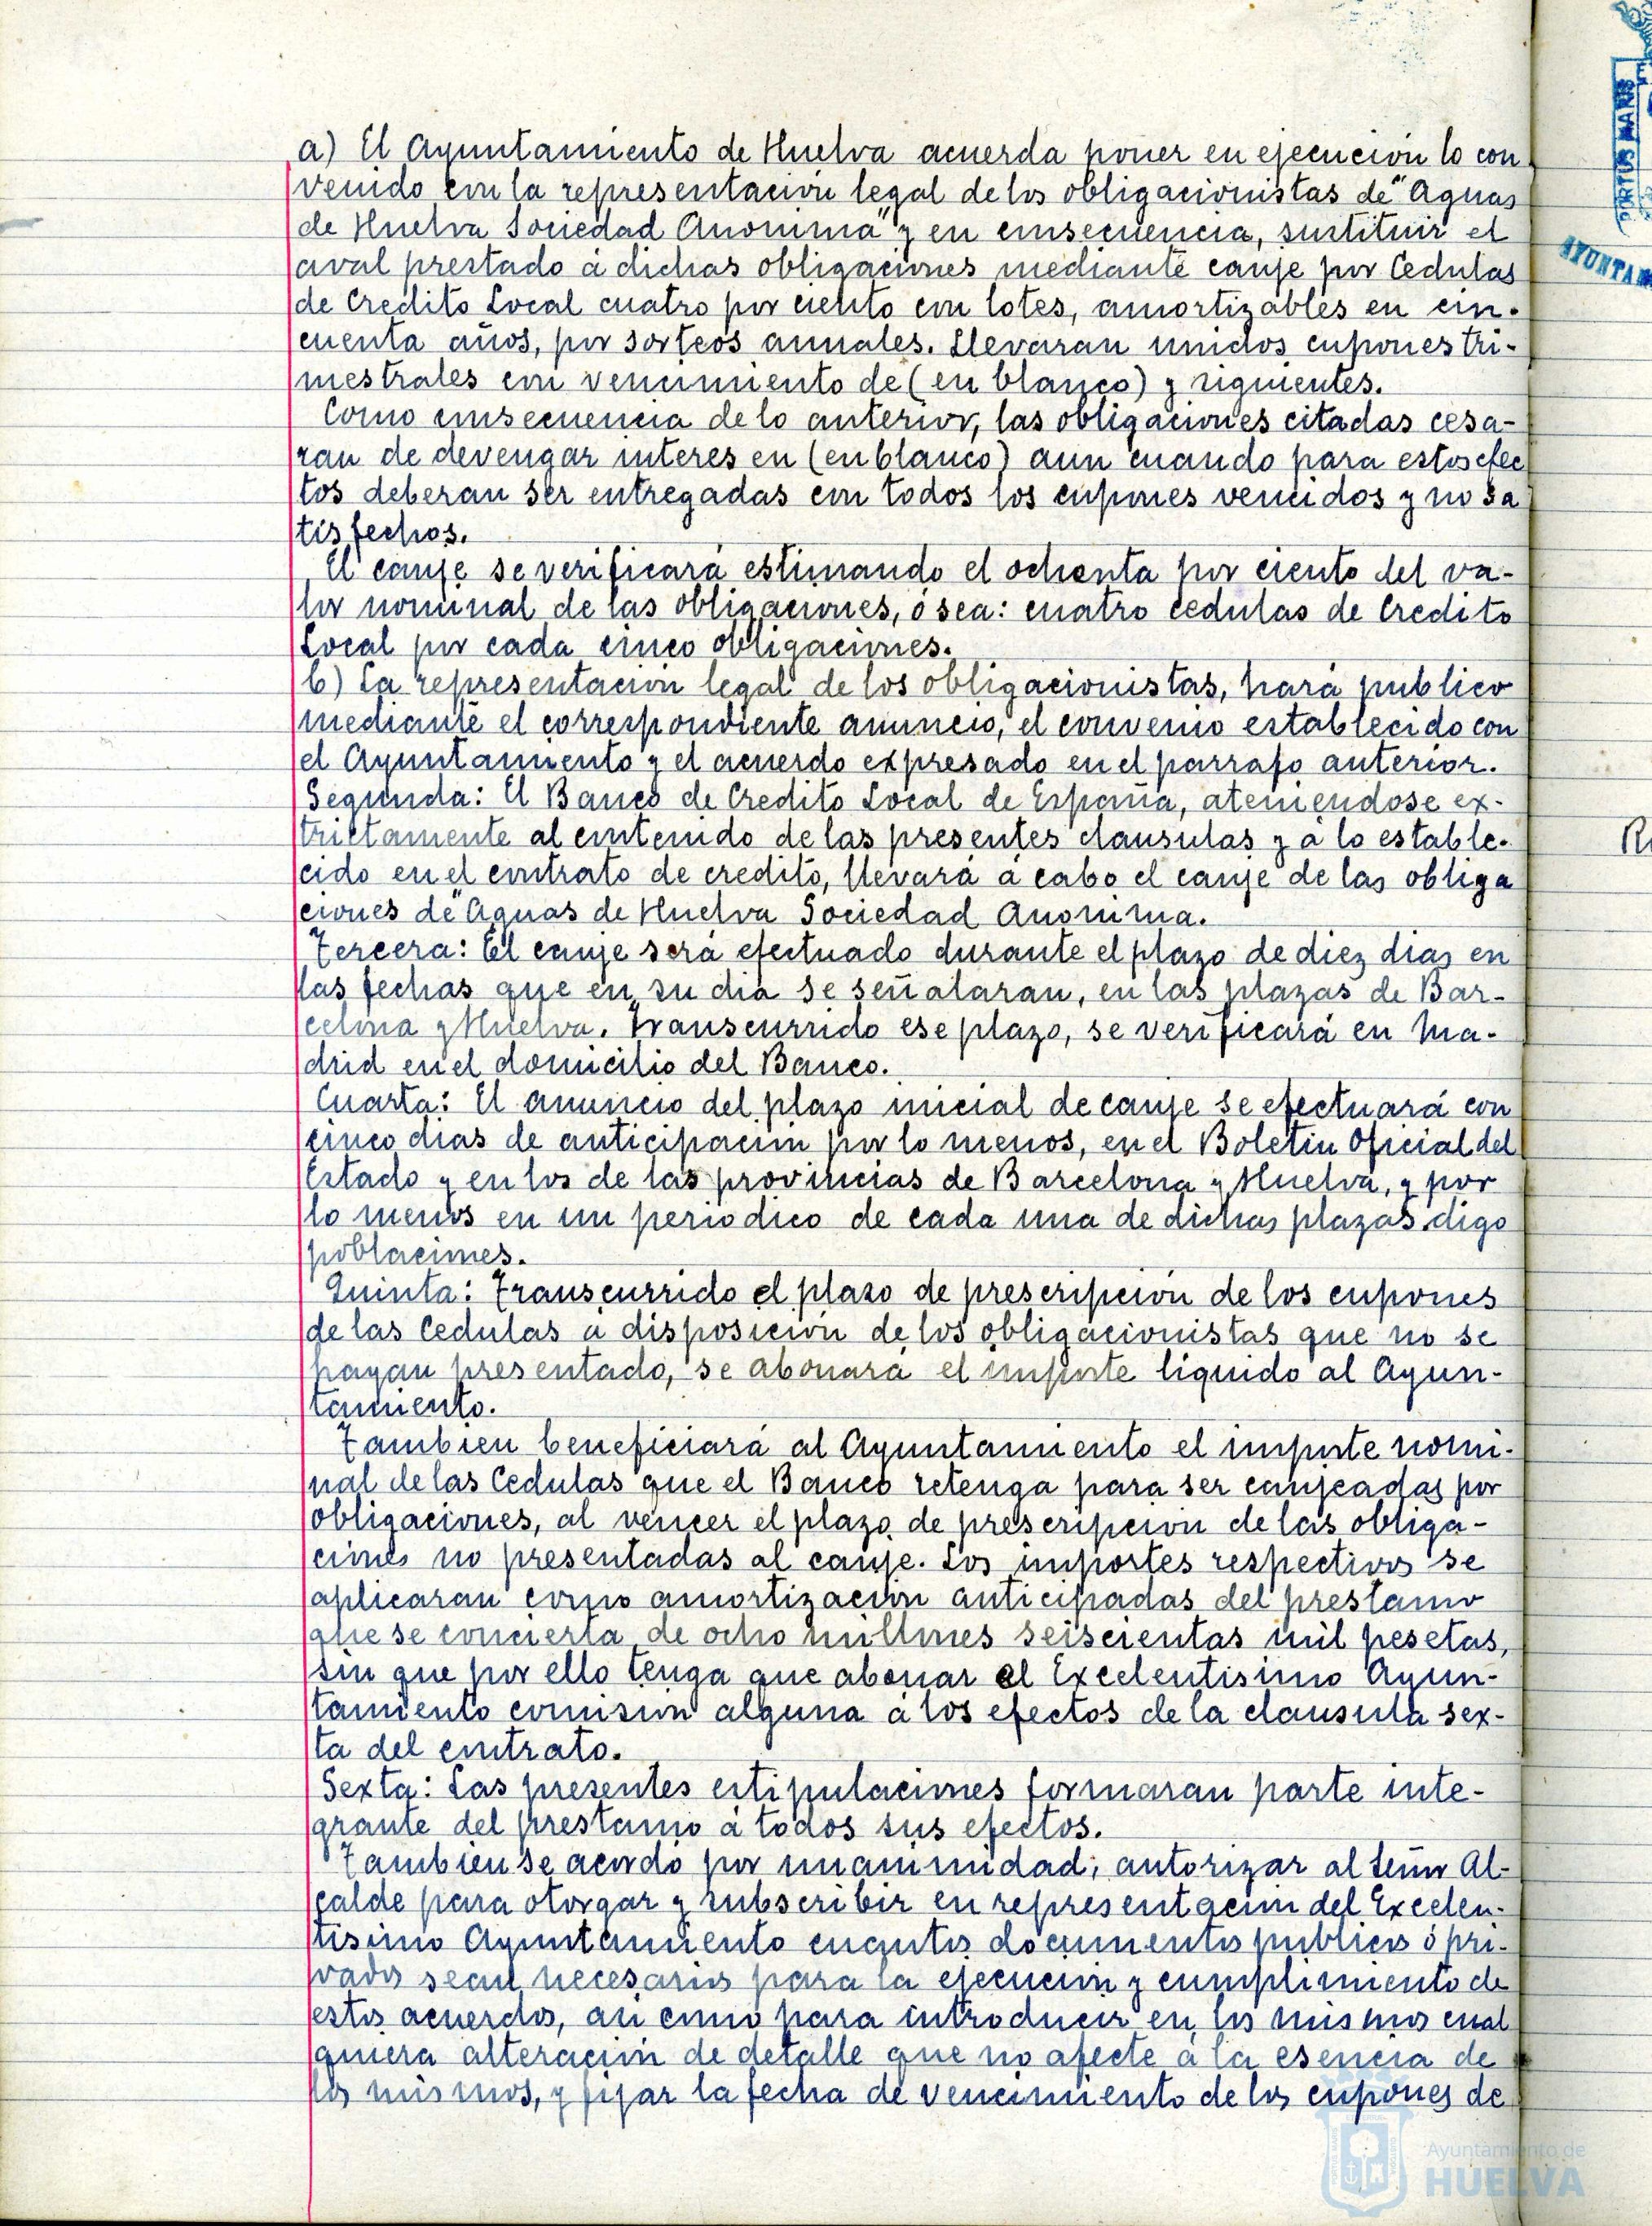 a) El Ayuntamiento de Huelva acuerda poner en ejecución lo con
venido con la representación legal de los obligacionistas de "Aguas
de Huelva Sociedad Anonima" y en consecuencia, sustituir el
aval prestado á dichas obligaciones mediante canje por Cedulas
de Credito Local cuatro por ciento con lotes, amortizables en cin-
cuenta años, por sorteos anuales. Llevaran unidos cupones tri-
mestrales con vencimiento de (en blanco) y siguientes.
Como consecuencia de lo anterior, las obligaciones citadas cesa-
ran de devengar interes en (en blanco) aun cuando para estos efec
tos deberan ser entregadas con todos los cupones vencidos y no sa
tisfechos.
El canje se verificará estimando el ochenta por ciento del va-
lor nominal de las obligaciones, ó sea: cuatro cedulas de Credito
Local por cada cinco obligaciones.
b) La representación legal de los obligacionistas, hará publico
mediante el correspondiente anuncio, el convenio establecido con
el Ayuntamiento y el acuerdo expresado en el parrafo anterior.
Segunda: El Banco de Credito Local de España, ateniendose ex-
trictamente al contenido de las presentes clausulas y á lo estable-
cido en el contrato de credito, llevará á cabo el canje de las obliga
ciones de "Aguas de Huelva Sociedad Anonima.
Tercera: El canje será efectuado durante el plazo de diez dias en
las fechas que en su dia se señalaran, en las plazas de Bar-
celona y Huelva. Transcurrido ese plazo, se verificará en Ma-
drid en el domicilio del Banco.
Cuarta: El anuncio del plazo inicial de canje se efectuará con
cinco dias de anticipación por lo menos, en el Boletin Oficial del
Estado y en los de las provincias de Barcelona y Huelva, y por
lo menos en un periodico de cada una de dichas plazas digo
poblaciones.
Quinta: Transcurrido el plazo de prescripción de los cupones
de las Cedulas a disposición de los obligacionistas que no se
hayan presentado, se abonará el importe liquido al Ayun-
tamiento.
Tambien beneficiará al Ayuntamiento el importe nomi-
nal de las Cedulas que el Banco retenga para ser canjeadas por
obligaciones, al vencer el plazo de prescripción de las obliga-
ciones no presentadas al canje. Los importes respectivos se
aplicaran como amortización anticipadas del prestamo
que se concierta de ocho millones seiscientas mil pesetas,
sin que por ello tenga que abonar el Excelentisimo Ayun-
tamiento comision alguna á los efectos de la clausula sex-
ta del contrato.
Sexta: Las presentes estipulaciones formaran parte inte-
grante del prestamo á todos sus efectos.
Tambien se acordó por unanimidad, autorizar al señor Al-
calde para otorgar y subscribir en representación del Excelen-
tisimo Ayuntamiento cuantos documentos publicos ó pri-
vados sean necesarios para la ejecución y cumplimiento de
estos acuerdos, asi como para introducir en los mismos cual
quiera alteración de detalle que no afecte á la esencia de
los mismos, y fijar la fecha de vencimiento de los cupones de
PORTUS MARIS
AYUNTAM
R
Ayuntamiento de
HUELVA